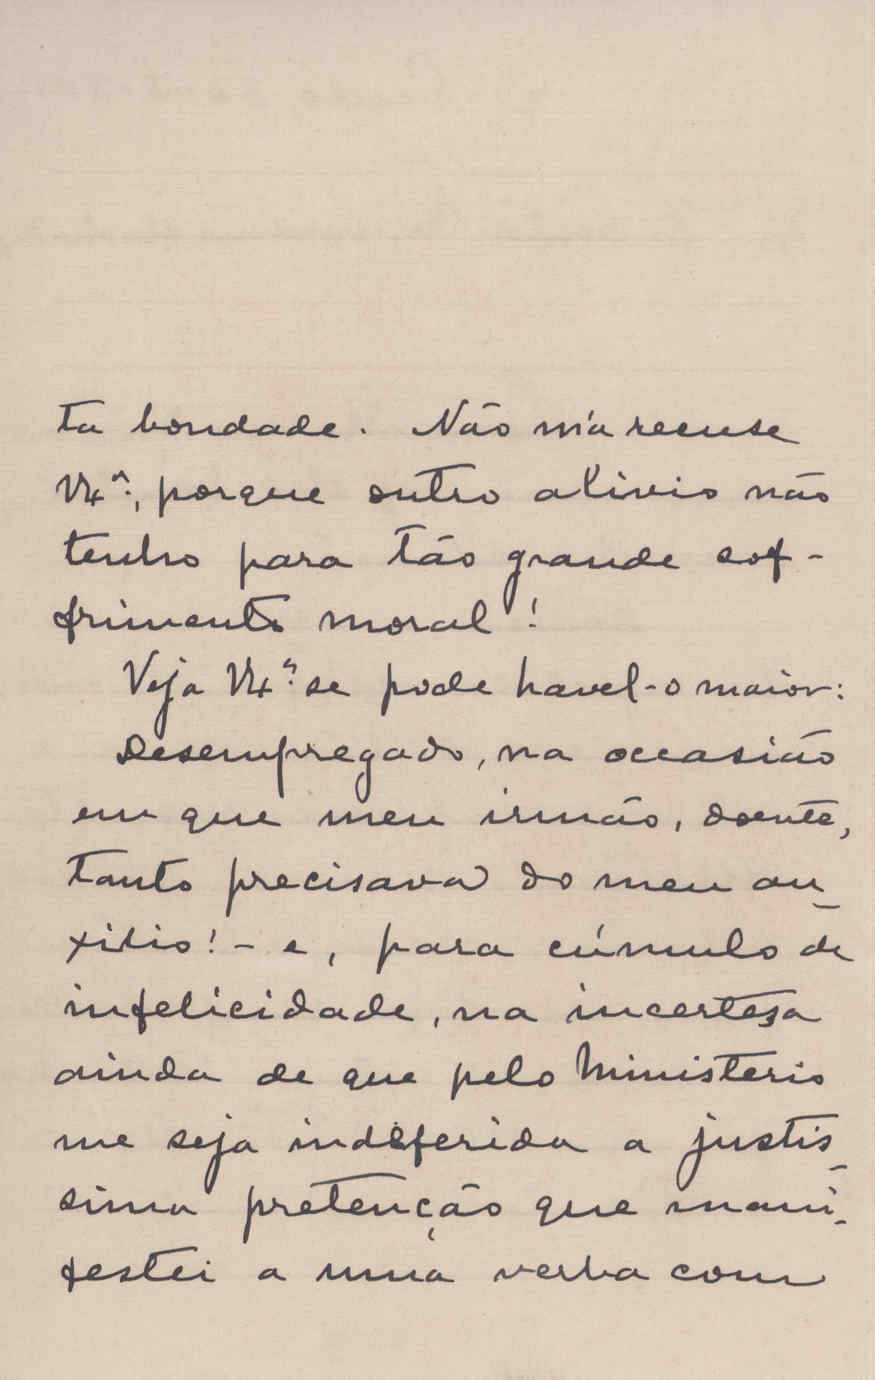 ta bondade. Não m'a recuse
V. Ex.ª, porque outro alivio não
tenho para tão grande sof-
frimento moral!
Veja V. Ex.ª se pode havel-o maior:
Desempregado, na occasião
em que meu irmão, doente,
tanto precisava do meu au-
xilio! - e, para cúmulo de
infelicidade, na incerteza
ainda de que pelo Ministerio
me seja indeferida a justis-
sima pretenção que mani-
festei a uma verba com